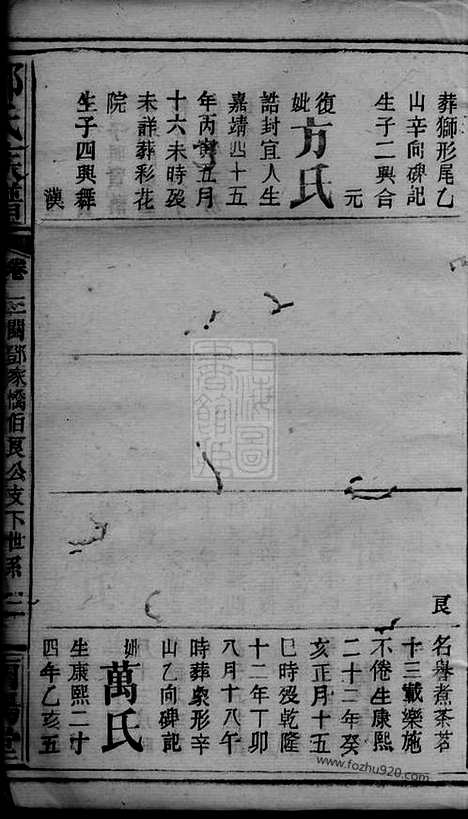 葬獅形尾乙
山辛向碑記
生子二興合
元
復
妣方氏
誥封宜人生
嘉靖四十五
年丙寅五月
十六未時殁
未詳葬彩花
院
生子四興舞
漢
良
名譽煮茶茗
十三載樂施
不倦生康熙
二十二年癸
亥正月十五
巳時殁乾隆
十二年丁卯
八月十八午
時葬象形辛
山乙向碑記
妣萬氏
生康熙二十
四年乙亥五
氏族譜
卷
三闗鄧家憍伯良公支下世系
二
堂
上海圖書館藏
www.fozhu920.com